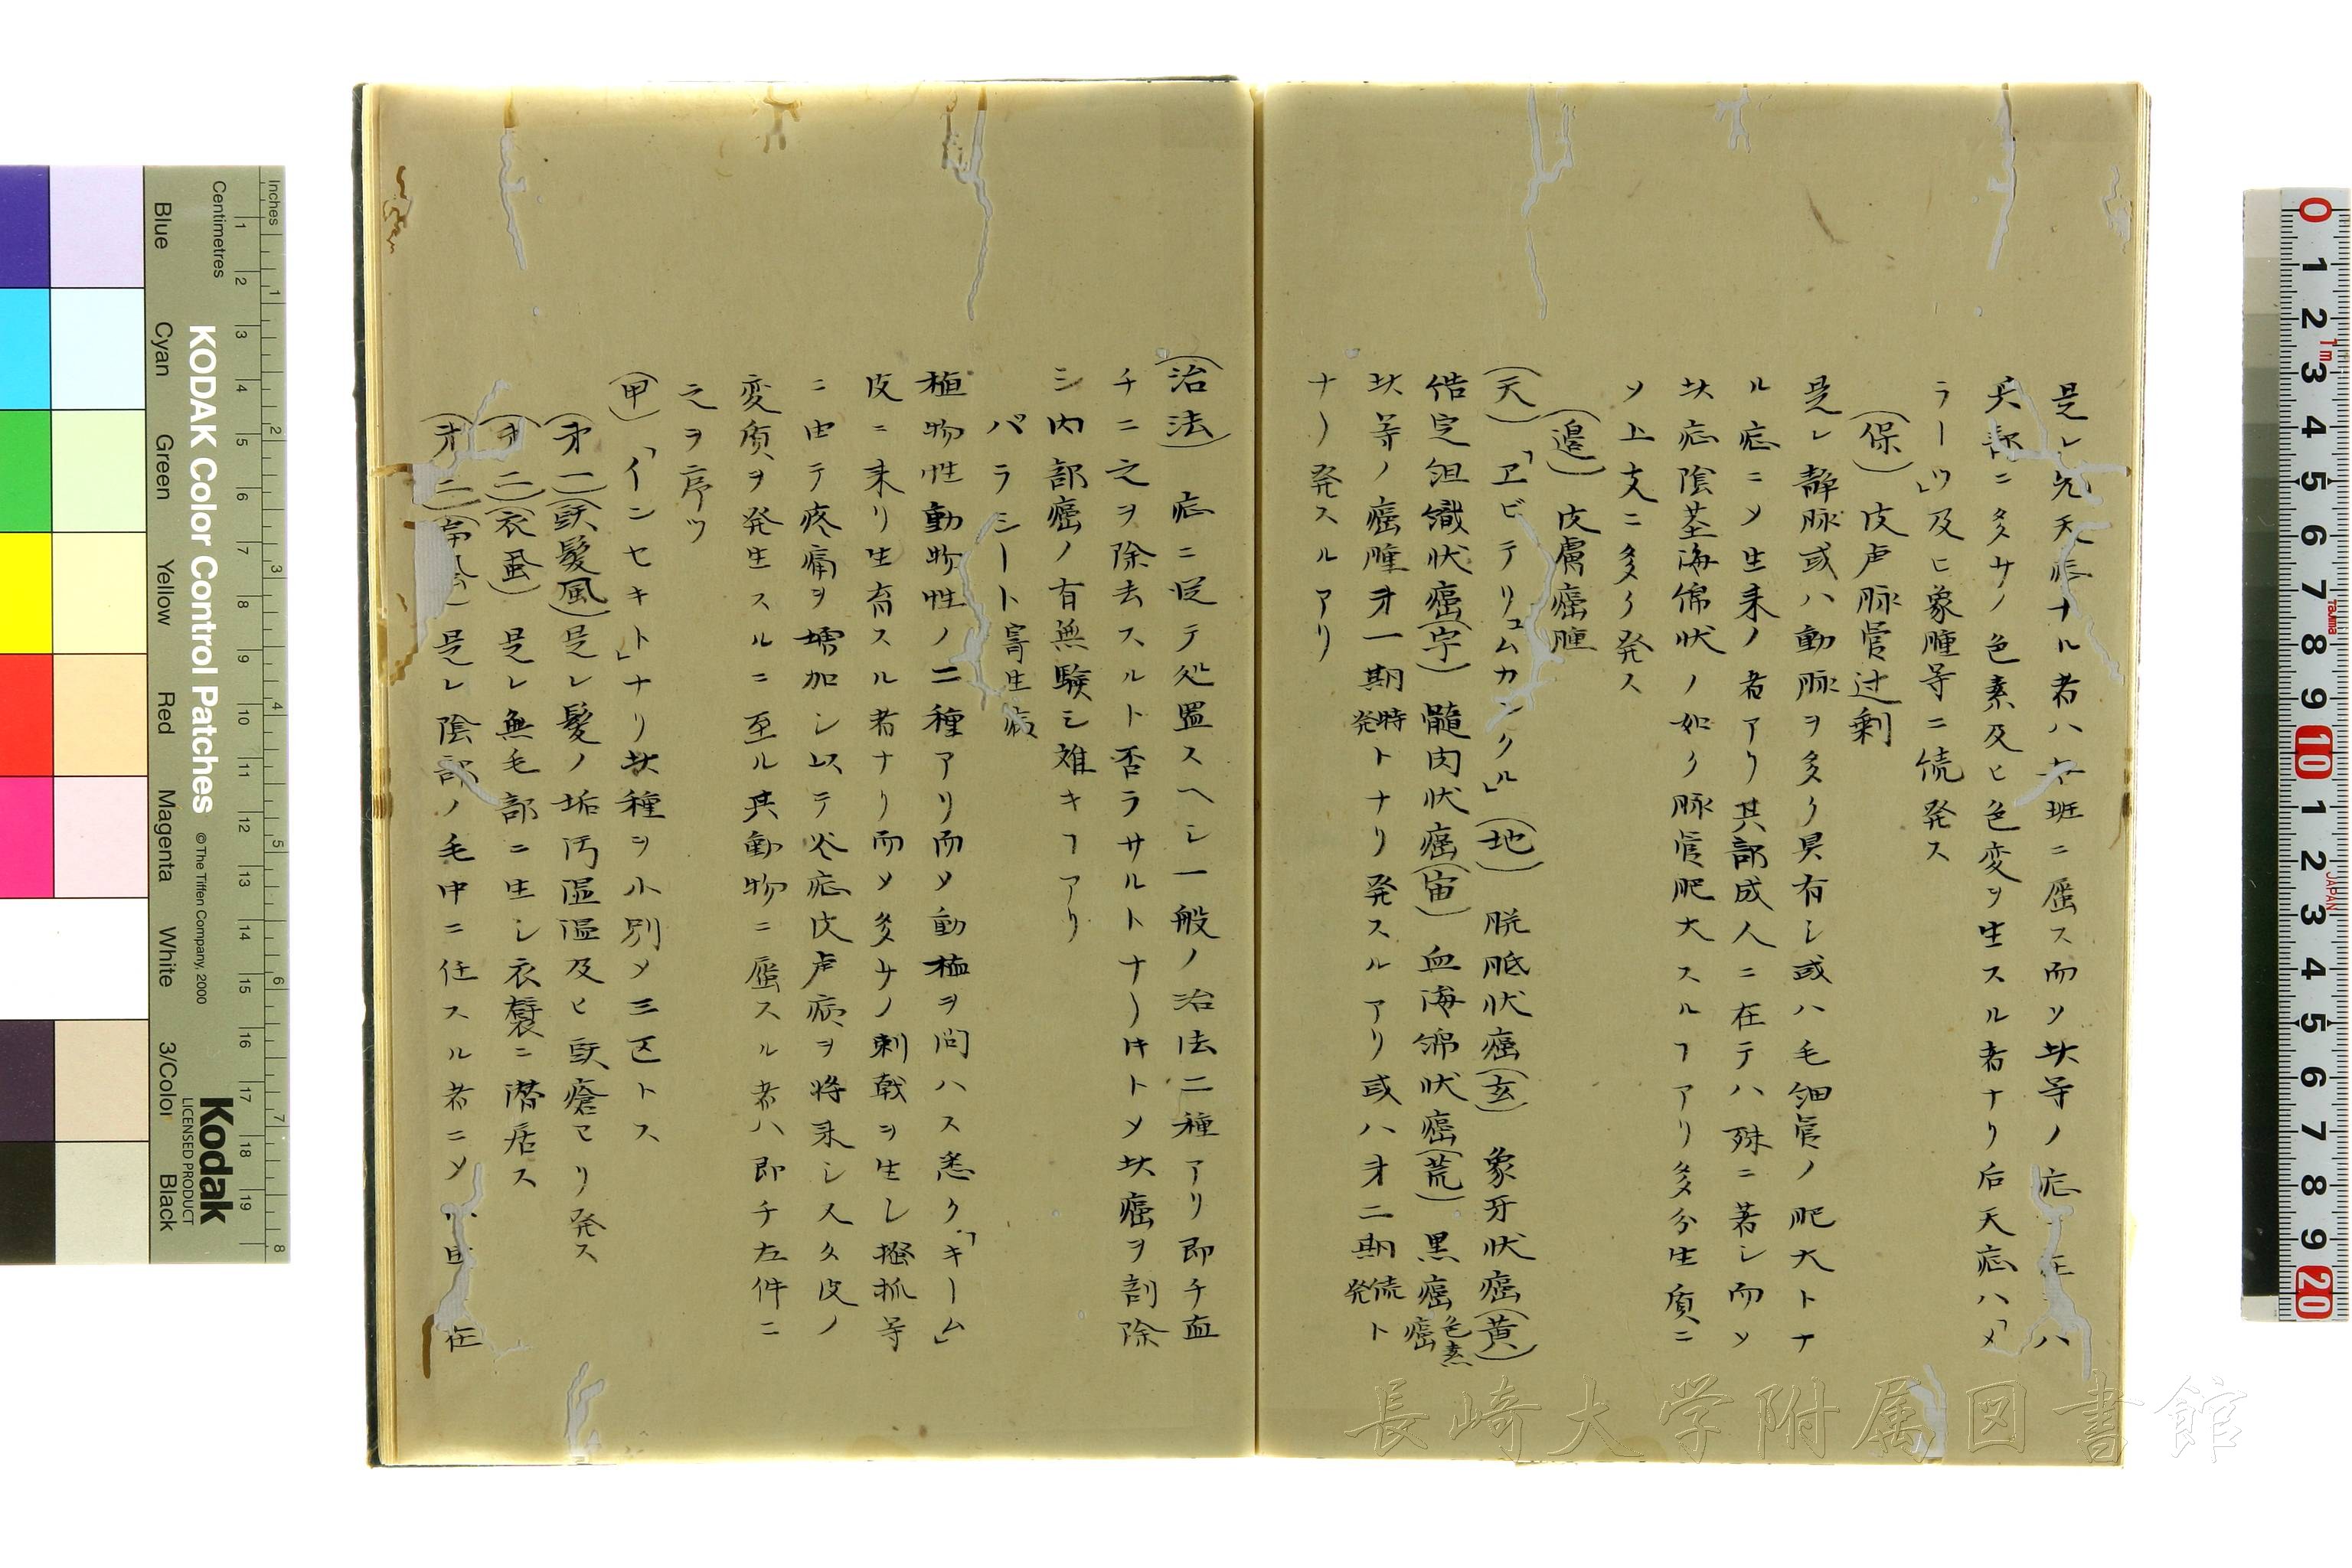 是レ先天症ナル者ハ母斑ニ属ス而ソ圤等ノ症ハ
其部ニ多少ノ色素及ヒ色変ヲ生スル者ナリ后天症ハ「メ
ラーツ」及ヒ象腫等ニ続発ス
(保) 皮膚脉管过剰
是レ静脉或ハ動脉ヲ多ク具有シ或ハ毛細管ノ肥大トナ
ル症ニメ生来ノ者アリ其部成人ニ在テハ殊ニ著シ而ソ
圤症陰茎海綿状ノ如ク脉管肥大スルヿアリ多分生質ニ
ソ上支ニ多ク発ス
(邉) 皮膚癌腫
(天)「ヱビテリュムカンクル」(地) 脱胝状癌(玄) 象牙状癌(黄)
偕定細織状癌(宇) 髓肉状癌(宙) 血海綿状癌(荒) 黒癌色素癌
圤等ノ癌腫才一期時発トナリ発スルアリ或ハ才二期続発ト
ナリ発スルアリ
(治法) 症ニ従テ処置スヘシ一般ノ治法二種アリ即チ直
チニ之ヲ除去スルト否ラサルトナリ圤癌ヲ割除
シ内部癌ノ有無験シ難キヿアリ
パラシート寄生病
植物性動物性ノ二種アリ而メ動植ヲ問ハス悉ク「キーム」
皮ニ来リ生育スル者ナリ而メ多少ノ刺戟ヲ生シ掻抓等
ニ由テ疼痛ヲ増加シ以テ炎症皮膚病ヲ将来シ又タ皮ノ
変質ヲ発生スルニ至ル其動物ニ属スル者ハ即チ左件ニ
之ヲ序ツ
(甲)「インセキト」ナリ圤種ヲ小別メ三区トス
才一(頭髪風) 是レ髪ノ垢汚湿温及ヒ頭瘡ヨリ発ス
(才二)(衣蝨) 是レ無毛部ニ生シ衣襞ニ潜居ス
(才三) 是レ陰部ノ毛中ニ住スル者ニメ
KODAK Color Control Patches
©The Tiffen Company, 2000
Kodak
LICENSED PRODUCT
Inches
Centimetres
Blue Cyan Green Yellow Red Magenta White 3/Color Black
長崎大学附属図書館